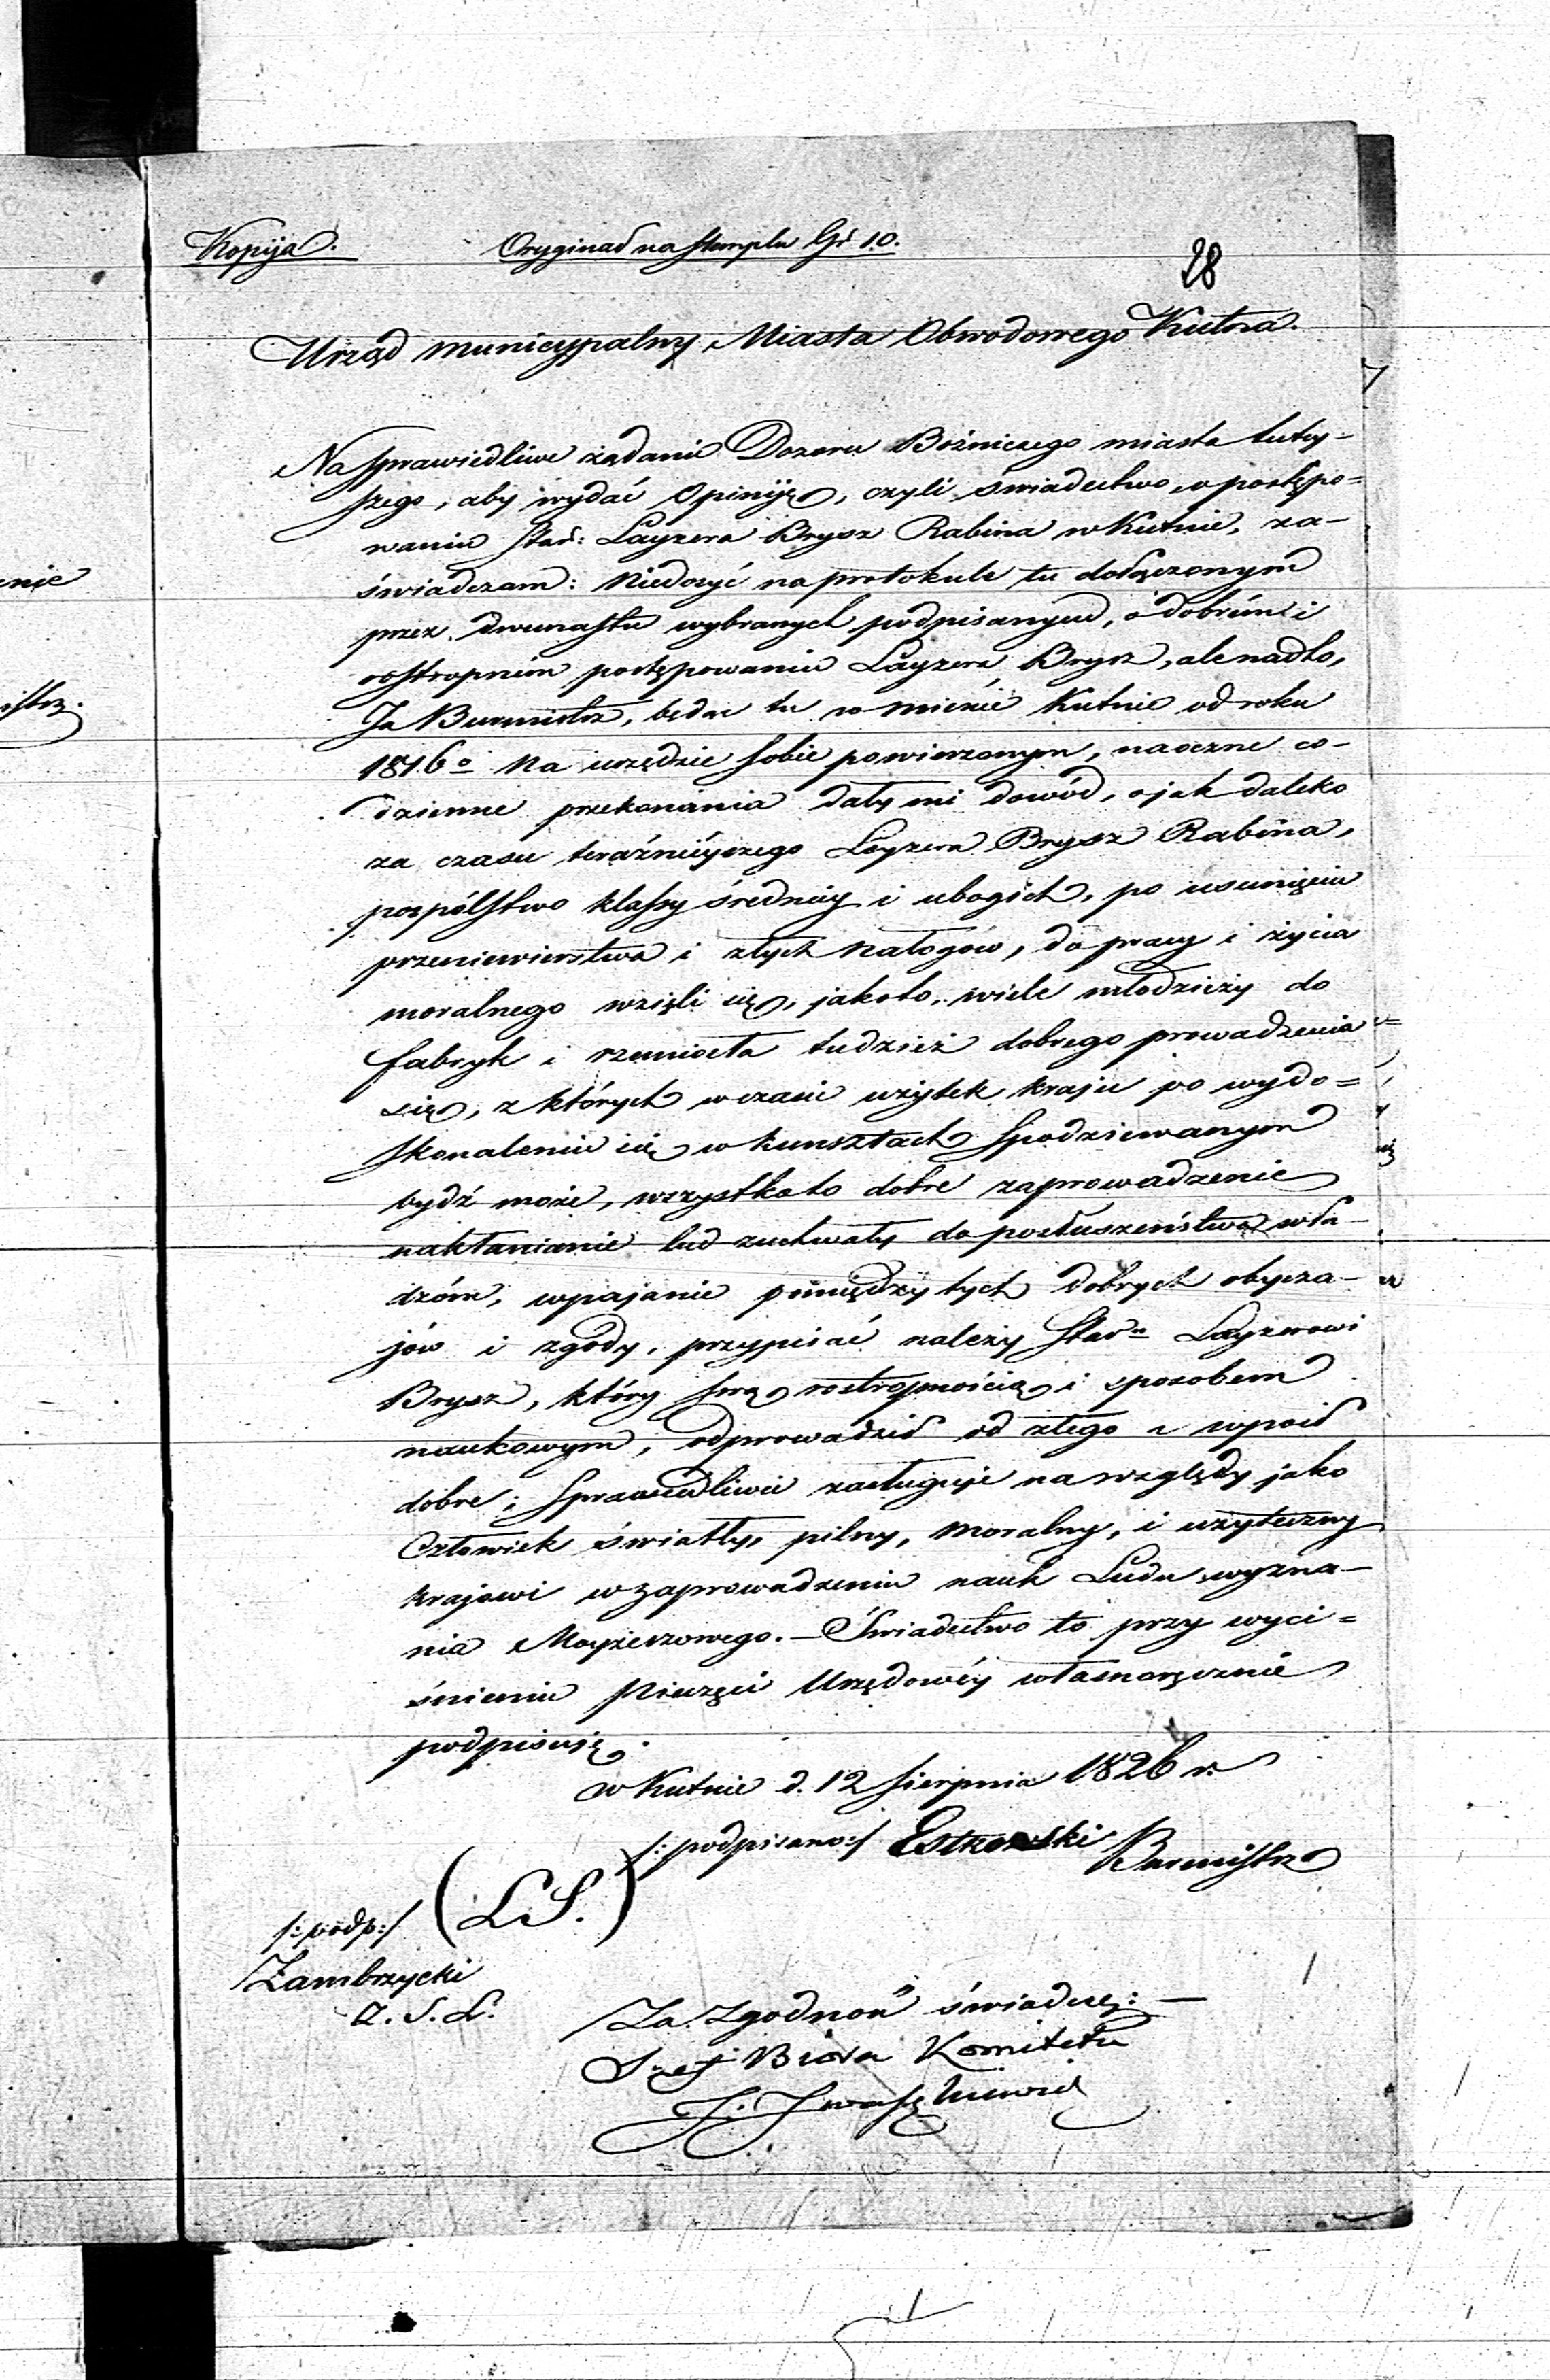 Kopija. Oryginał na stemplu Gr 10.
28
Urząd Municypalny Miasta Obwodowego Kutna.
Na sprawiedliwe żądanie Dozoru Bożniczego miasta tutey-
szego, aby wydać Opiniję, czyli świadectwo, o postępo=
waniu Star: Layzera Brysz Rabina w Kutnie, za-
świadczam: Niedosyć na protokule tu dołączonym
przez dwunastu wybranych podpisanym, o dobrém i
rostropném postępowaniu Layzera Brysz, ale nadto,
Ja Burmistrz, będąc tu w mieście Kutnie od roku
1816º na urzędzie sobie powierzonym, naoczne co-
dzienne przekonania dały mi dowód, o jak daleko
za czasu teraźnieyszego Layzera Brysz Rabina,
pospólstwo klassy średniey i ubogich, po usunięciu
przeniewierstwa i złych nałogów, do pracy i życia
moralnego wzięli się, jakoto, wiele młodzieży do
fabryk i rzemiosła tudzież dobrego prowadzenia
się, z których w czasie użytek kraju po wydo=
skonaleniu się w kunsztach spodziewanym
bydź może, wszystko to dobre zaprowadzenie
nakłanianie lud zuchwały do posłuszeństwa wła-
dzóm, wpajanie pomiędzy tych dobrych obycza-
jów i zgody, przypisać należy Starⁿ Layzerowi
Brysz, który swą rostropnością i sposobem
naukowym, odprowadził od złego a wpoił
dobre; sprawiedliwie zasługuje na względy jako
Człowiek światły, pilny, moralny, i użyteczny
krajowi w zaprowadzeniu nauk Ludu wyzna-
nia Moyżeszowego. — Świadectwo to przy wyci=
śnieniu Pieczęci Urzędowéy własnoręcznie
podpisuję.
w Kutnie d. 12 Sierpnia 1826 r.
/: podpisano:/ Estkowski Burmistrz
(L.S.)
/: podp:/
Zambrzycki
Za Zgodność świadczę: —
Szef Biora Komitetu
J. Jwaszkiewicz